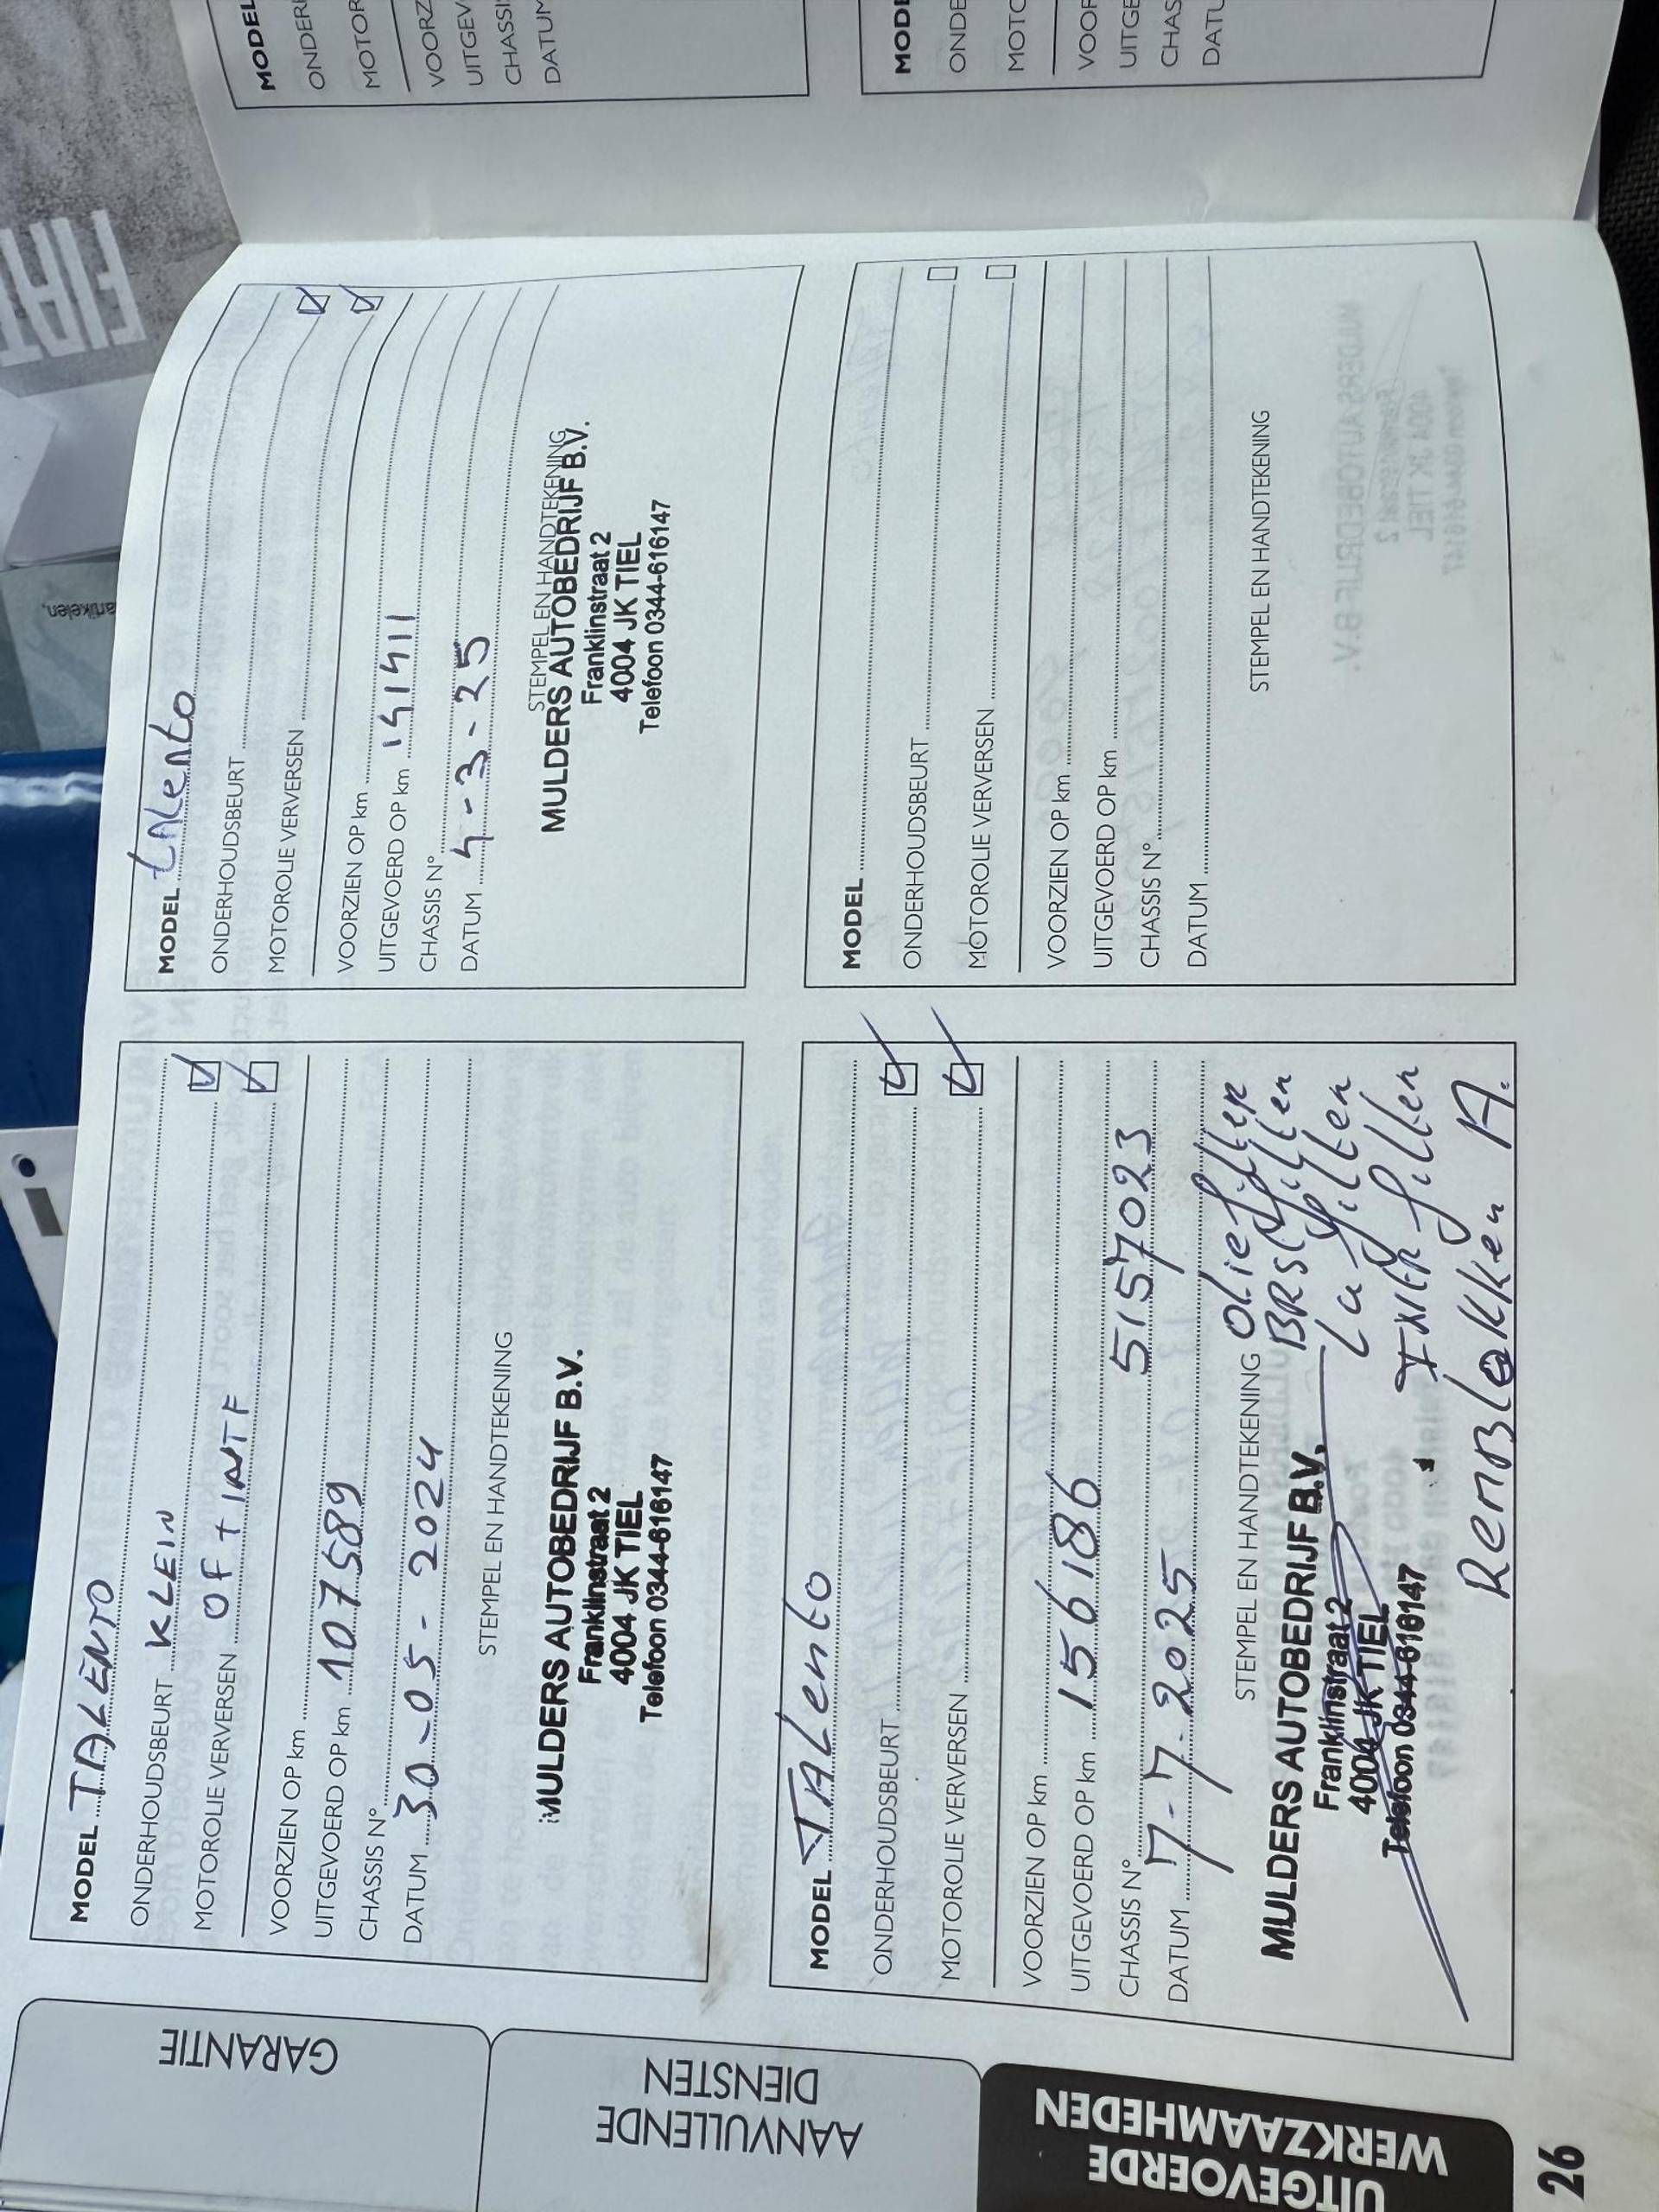 FIAT
artikelen,
MODEL
ONDERH
MOTOR
VOORZ
UITGEV
CHASSI
DATUM
MODE
ONDE
MOTO
VOOR
UITGE
CHAS
DATU
MODEL TALENTO
ONDERHOUDSBEURT KLEIN
MOTOROLIE VERVERSEN OF + IANTF
VOORZIEN OP km
UITGEVOERD OP km 107589
CHASSIS N°
DATUM 30-05-2024
STEMPEL EN HANDTEKENING
MULDERS AUTOBEDRIJF B.V.
Franklinstraat 2
4004 JK TIEL
Telefoon 0344-616147
MODEL TALento
ONDERHOUDSBEURT
MOTOROLIE VERVERSEN
VOORZIEN OP km
UITGEVOERD OP km 141411
CHASSIS N°
DATUM 4-3-25
STEMPEL EN HANDTEKENING
MULDERS AUTOBEDRIJF B.V.
Franklinstraat 2
4004 JK TIEL
Telefoon 0344-616147
MODEL TALento
ONDERHOUDSBEURT
MOTOROLIE VERVERSEN
VOORZIEN OP km
UITGEVOERD OP km 156186
CHASSIS N° 5157023
DATUM 7-7-2025
STEMPEL EN HANDTEKENING Oliefilter
BRSt filter
MULDERS AUTOBEDRIJF B.V.
Franklinstraat 2
Lu filter
4004 JK TIEL
Telefoon 0344-616147
filter
Remblokken A.
MODEL
ONDERHOUDSBEURT
MOTOROLIE VERVERSEN
VOORZIEN OP km
UITGEVOERD OP km
CHASSIS N°
DATUM
STEMPEL EN HANDTEKENING
GARANTIE
AANVULLENDE
DIENSTEN
UITGEVOERDE
WERKZAAMHEDEN
26